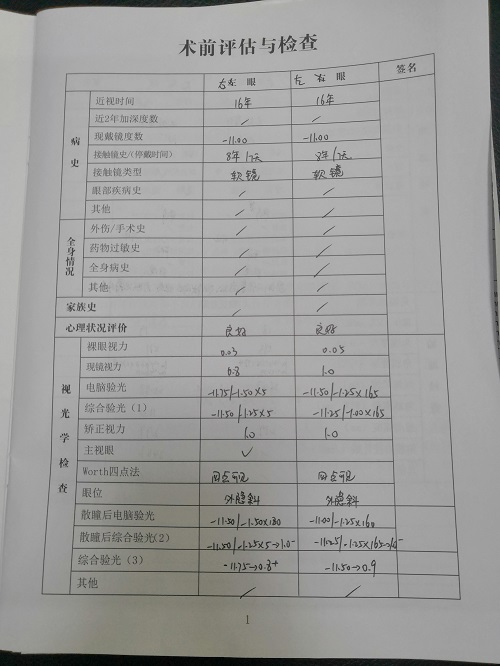 术前评估与检查
右左 眼 左 右 眼 签名
病史
近视时间 16年 16年
近2年加深度数 / /
现戴镜度数 -11.00 -11.00
接触镜史/(停戴时间) 8年/7天 8年/7天
接触镜类型 软镜 软镜
眼部疾病史 / /
其他 / /
全身情况
外伤/手术史 / /
药物过敏史 / /
全身病史 / /
其他 / /
家族史 / /
心理状况评价 良好 良好
视光学检查
裸眼视力 0.03 0.05
现镜视力 0.8 1.0
电脑验光 -11.75/-1.50×5 -11.50/-1.25×165
综合验光（1） -11.50/-1.25×5 -11.25/-1.00×165
矫正视力 1.0 1.0
主视眼 ✓
Worth四点法 四点可见 四点可见
眼位 外隐斜 外隐斜
散瞳后电脑验光 -11.50/-1.50×180 -11.00/-1.25×160
散瞳后综合验光(2) -11.50/-1.25×5→1.0⁻ -11.25/-1.25×165→1.0⁻
综合验光（3） -11.75→0.8⁺ -11.50→0.9
其他 / /
1